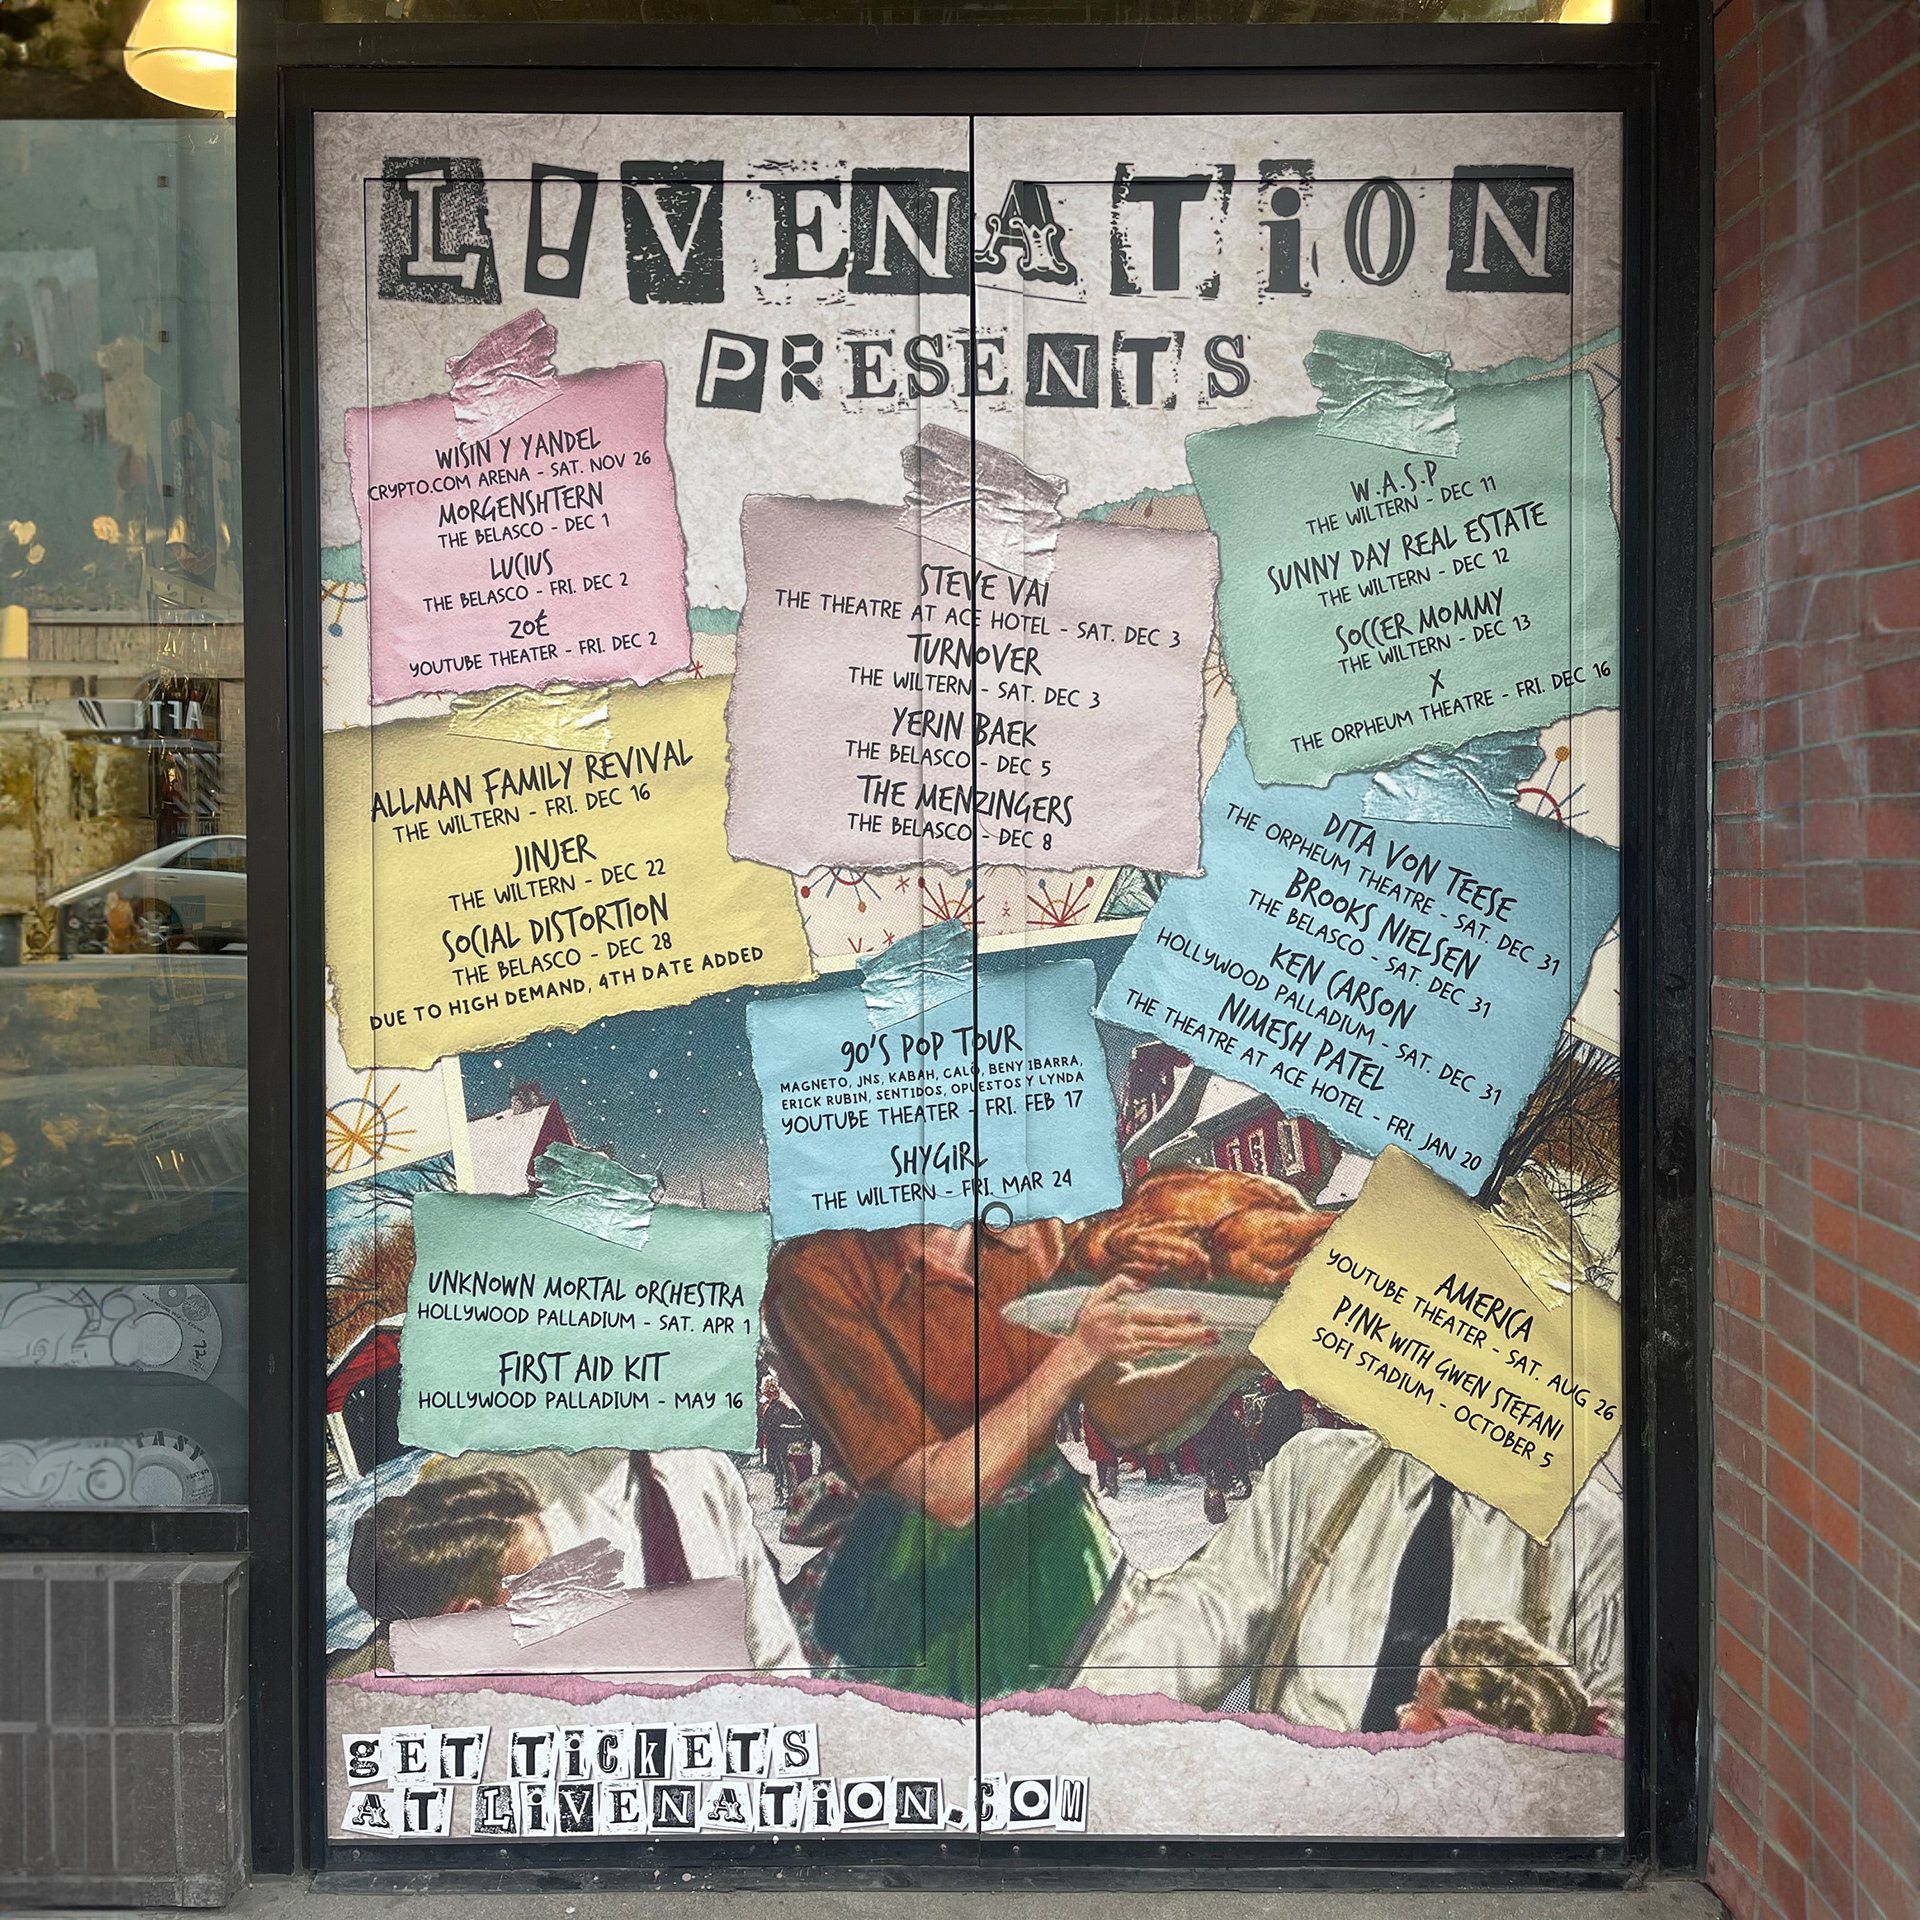 L!VENATiON
PRESENTS
WISIN Y YANDEL
CRYPTO.COM ARENA - SAT. NOV 26
MORGENSHTERN
THE BELASCO - DEC 1
LUCIUS
THE BELASCO - FRI. DEC 2
ZOÉ
YOUTUBE THEATER - FRI. DEC 2
STEVE VAI
THE THEATRE AT ACE HOTEL - SAT. DEC 3
TURNOVER
THE WILTERN - SAT. DEC 3
YERIN BAEK
THE BELASCO - DEC 5
THE MENZINGERS
THE BELASCO - DEC 8
W.A.S.P
THE WILTERN - DEC 11
SUNNY DAY REAL ESTATE
THE WILTERN - DEC 12
SOCCER MOMMY
THE WILTERN - DEC 13
X
THE ORPHEUM THEATRE - FRI. DEC 16
ALLMAN FAMILY REVIVAL
THE WILTERN - FRI. DEC 16
JINJER
THE WILTERN - DEC 22
SOCIAL DISTORTION
THE BELASCO - DEC 28
DUE TO HIGH DEMAND, 4TH DATE ADDED
DITA VON TEESE
THE ORPHEUM THEATRE - SAT. DEC 31
BROOKS NIELSEN
THE BELASCO - SAT. DEC 31
KEN CARSON
HOLLYWOOD PALLADIUM - SAT. DEC 31
NIMESH PATEL
THE THEATRE AT ACE HOTEL - FRI. JAN 20
90'S POP TOUR
MAGNETO, JNS, KABAH, CALÓ, BENY IBARRA,
ERICK RUBIN, SENTIDOS, OPUESTOS Y LYNDA
YOUTUBE THEATER - FRI. FEB 17
SHYGIRL
THE WILTERN - FRI. MAR 24
UNKNOWN MORTAL ORCHESTRA
HOLLYWOOD PALLADIUM - SAT. APR 1
FIRST AID KIT
HOLLYWOOD PALLADIUM - MAY 16
AMERICA
YOUTUBE THEATER - SAT. AUG 26
P!NK WITH GWEN STEFANI
SOFI STADIUM - OCTOBER 5
gET TiCkETS
AT LiVENATiON.COM